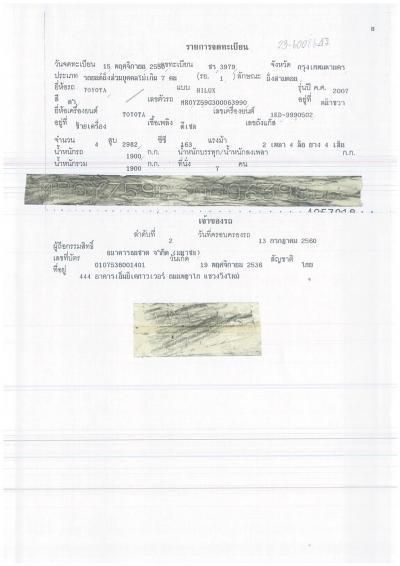 8
รายการจดทะเบียน
วันจดทะเบียน 15 พฤศจิกายน เลขทะเบียน ชร 3979 จังหวัด กรุงเทพมหานคร
ประเภท รถยนต์นั่งส่วนบุคคลไม่เกิน 7 คน (รย. 1) ลักษณะ นั่งสามตอน
ยี่ห้อรถ TOYOTA แบบ HILUX รุ่นปี ค.ศ. 2007
สี ดำ เลขตัวรถ MR0YZ59G300063990 อยู่ที่
ยี่ห้อเครื่องยนต์ TOYOTA เลขเครื่องยนต์ 1KD-9990502
อยู่ที่ ซ้ายเครื่อง เชื้อเพลิง ดีเซล เลขถังแก๊ส
จำนวน 4 สูบ 2982 ซีซี 163 แรงม้า 2 เพลา 4 ล้อ ยาง 4 เส้น
น้ำหนักรถ 1900 ก.ก. น้ำหนักบรรทุก/น้ำหนักลงเพลา ก.ก.
น้ำหนักรวม 1900 ก.ก. ที่นั่ง 7 คน
เจ้าของรถ
ลำดับที่ 2 วันที่ครอบครองรถ 13 กรกฎาคม 2560
ผู้ถือกรรมสิทธิ์ ธนาคารธนชาต จำกัด (มหาชน)
เลขที่บัตร 0107536001401 วันเกิด 19 พฤศจิกายน 2536 สัญชาติ ไทย
ที่อยู่ 444 อาคารเอ็มบีเคทาวเวอร์ ถนนพญาไท แขวงวังใหม่